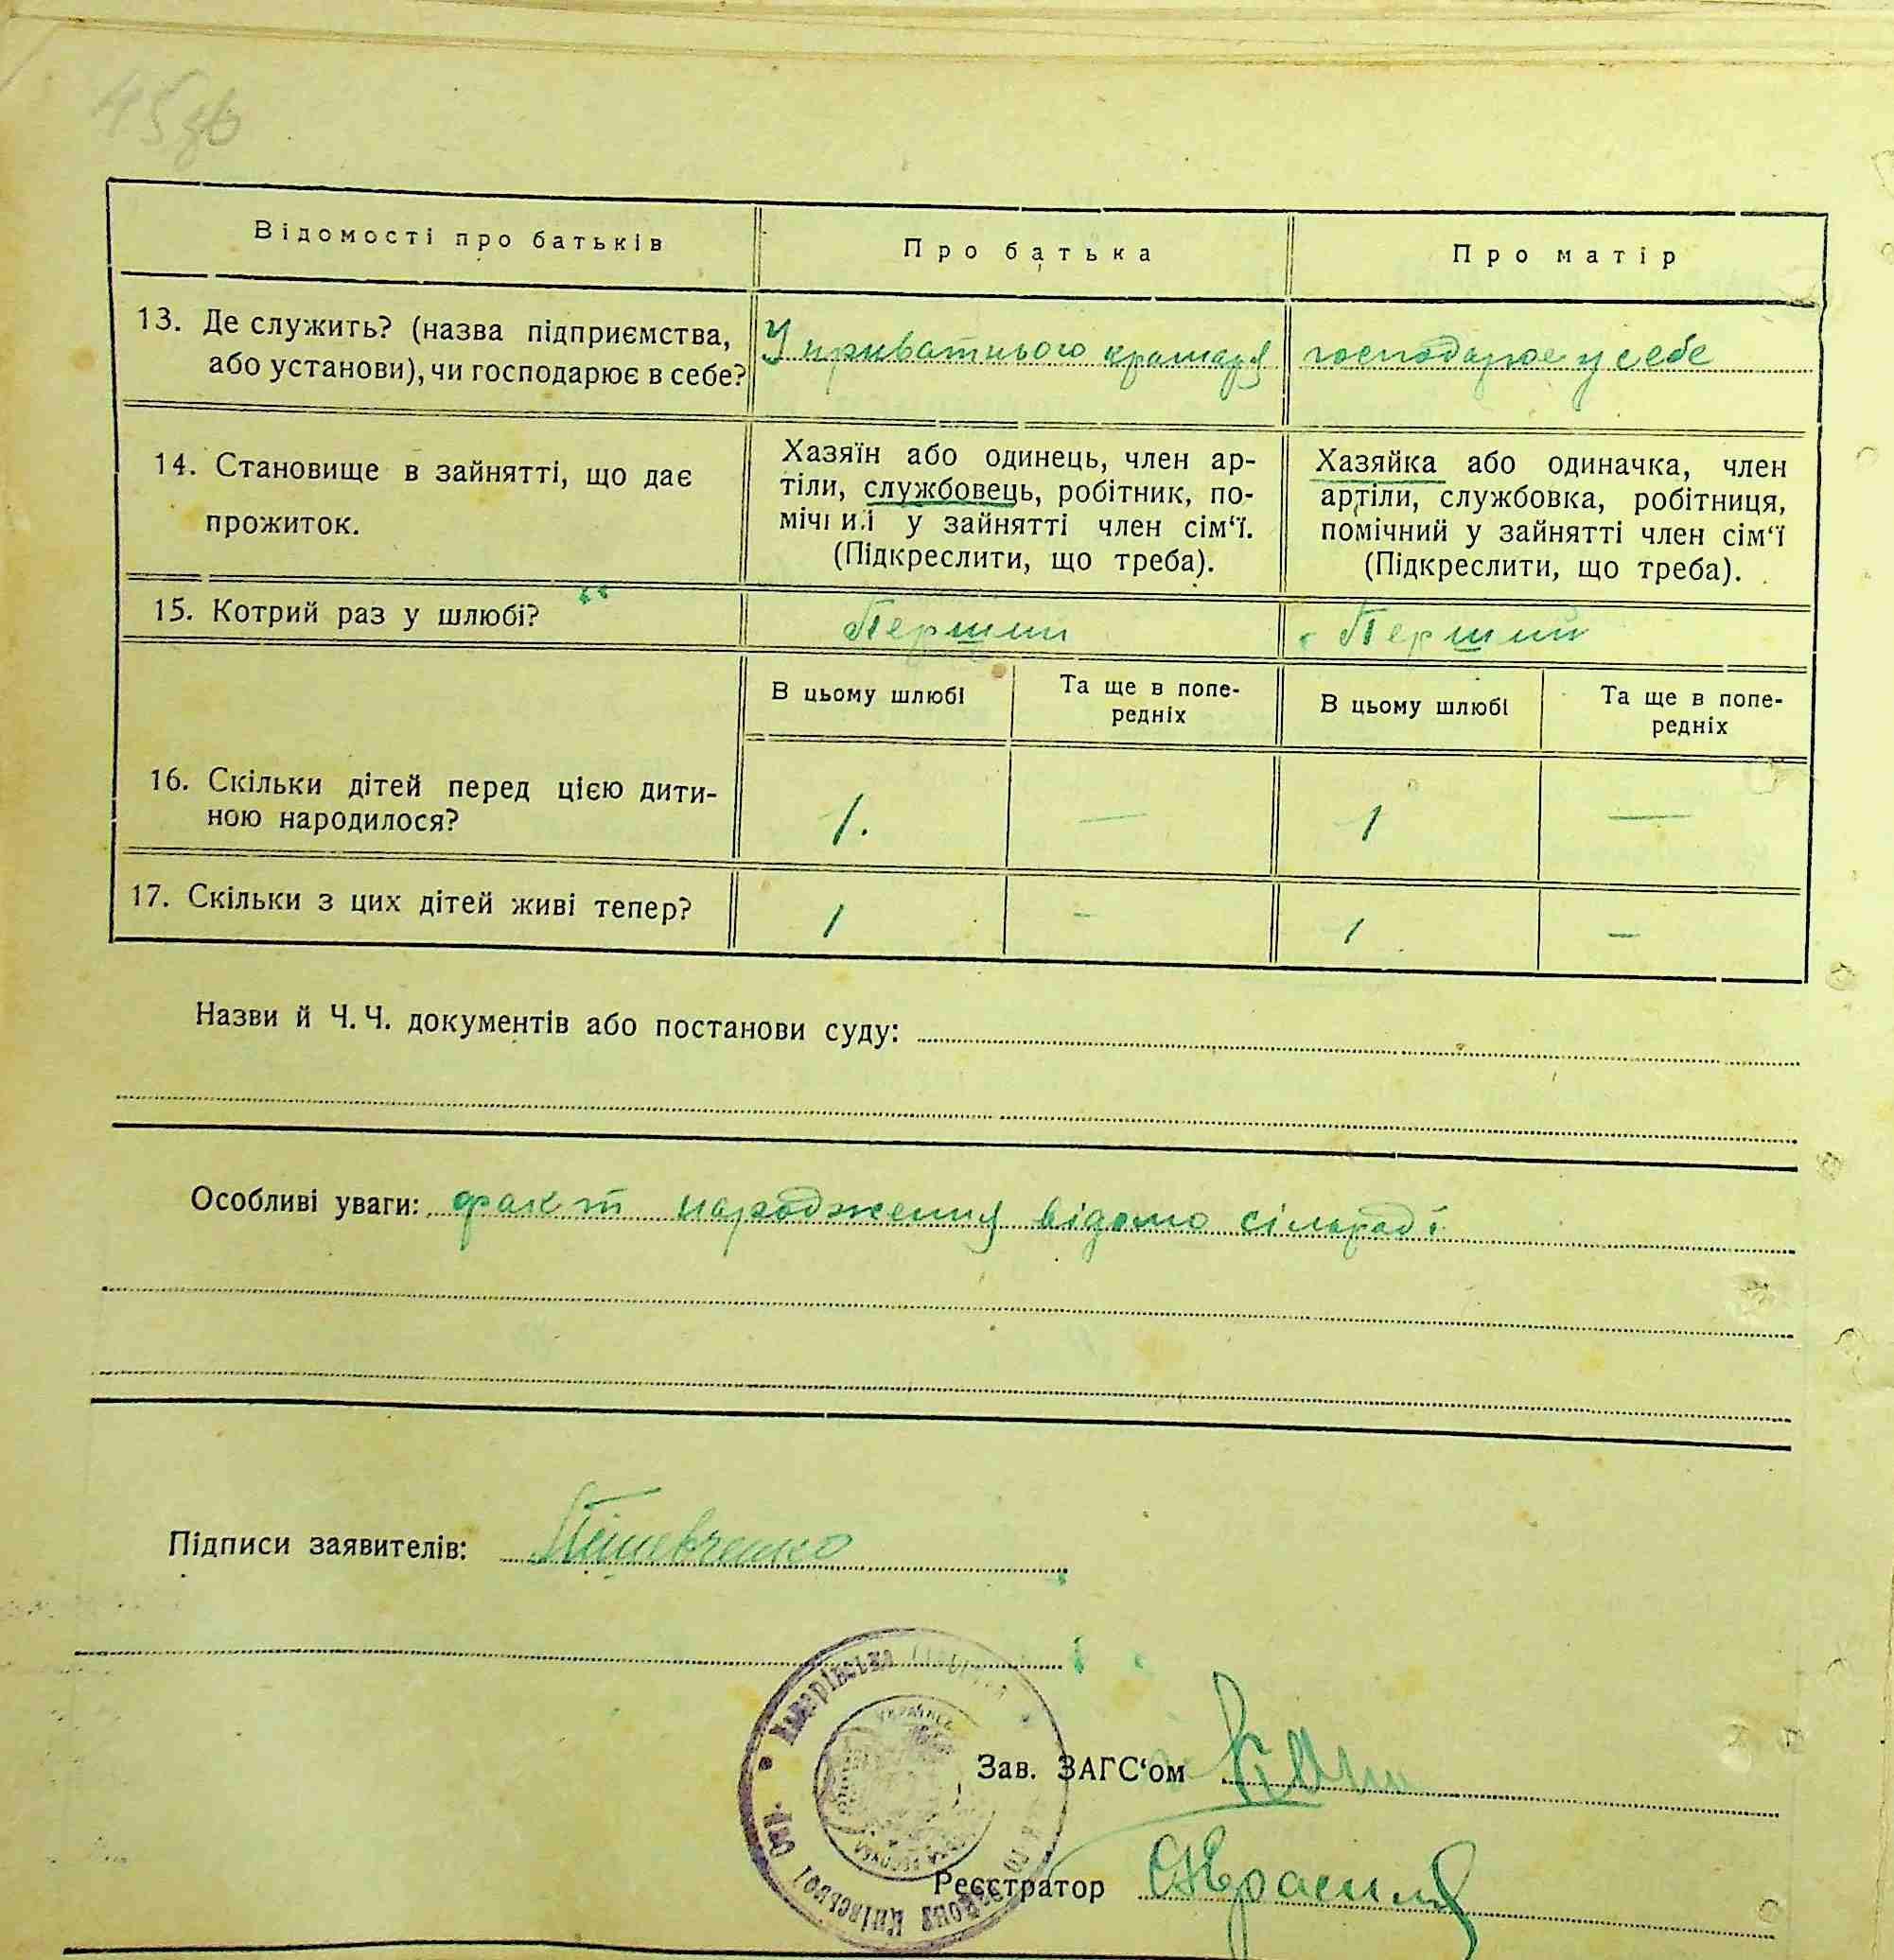 45зв
Відомості про батьків Про батька Про матір
13. Де служить? (назва підприємства, або установи), чи господарює в себе?
У приватнього крамаря
господарює у себе
14. Становище в зайнятті, що дає прожиток.
Хазяїн або одинець, член ар-
тіли, службовець, робітник, по-
мічний у зайнятті член сім‘ї.
(Підкреслити, що треба).
Хазяйка або одиначка, член
артіли, службовка, робітниця,
помічний у зайнятті член сім‘ї
(Підкреслити, що треба).
15. Котрий раз у шлюбі? Перший Перший
В цьому шлюбі Та ще в попе-
редніх В цьому шлюбі Та ще в попе-
редніх
16. Скільки дітей перед цією дити-
ною народилося? 1. — 1 —
17. Скільки з цих дітей живі тепер? 1 - 1 -
Назви й Ч. Ч. документів або постанови суду:
Особливі уваги: факт народження відомо сільраді
Підписи заявителів:
Зав. ЗАГС‘ом
Реєстратор